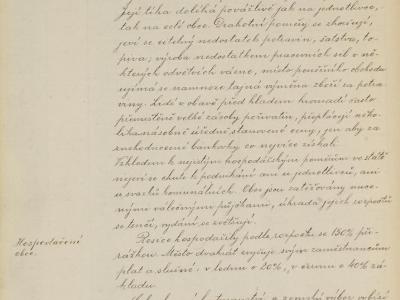 Její tíha doléhá povážlivě jak na jednotlivce,
tak na celé obce. Drahotní poměry se zhoršují,
jeví se citelný nedostatek potravin, šatstva, to-
piva; výroba nedostatkem pracovních sil v ně-
kterých odvětvích vázne, místo peněžního obchodu
ujímá se namnoze tajná výměna zboží za potra-
viny. Lidé v obavě před hladem hromadí často
přemrštěně velké zásoby potravin, přeplácejí něko-
likanásobně úředně stanovené ceny, jen aby za
znehodnocené bankovky co nejvíce získali.
Vzhledem k nejistým hospodářským poměrům ve státě
nejeví se chuti k podnikání ani u jednotlivců, ani
u svazků komunálních. Obce jsou zatěžovány nuce-
nými válečnými půjčkami, úhrada jejich rozpočtů
se tenčí, vydání se zvětšují.
Hospodaření
obce.
Peníze hospodařily podle rozpočtu se 150% při-
rážkou. Město dvakrát zvyšuje svým zaměstnancům
plat a služné: v lednu o 20%, v srpnu o 40% zá-
kladu.